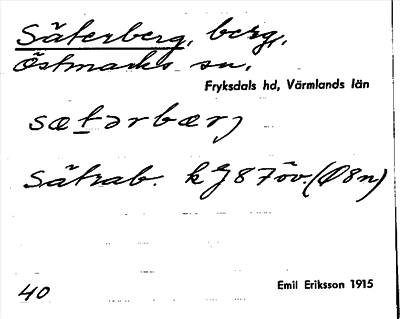 Säterberg, berg,
Östmarks sn.
Fryksdals hd, Värmlands län
sætərbærj
Sätrab. k J 8 7 öv. (Ø 8 n)
40 Emil Eriksson 1915